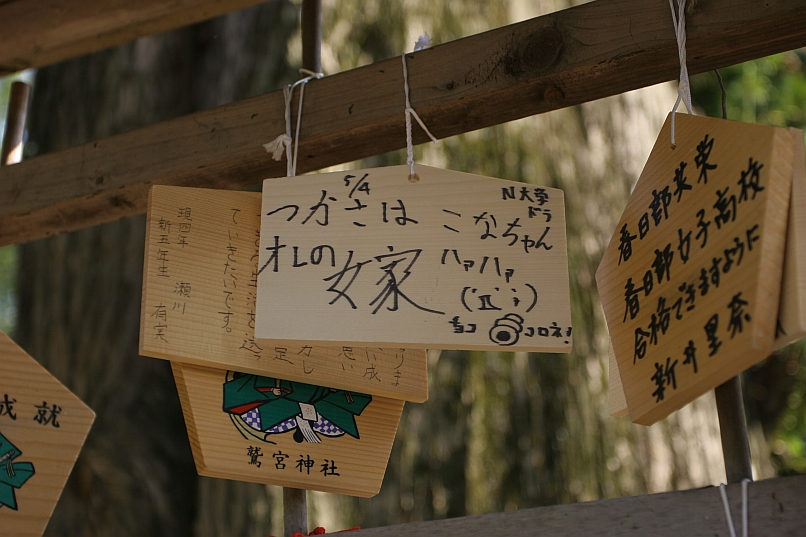 5/4
つかさは
オレの
女家
N大学
ドラ
こなちゃん
ハァハァ
(´Д`;)
チョココロネ!
ていきたいです。
現四年 瀬川
新五年生 有実
鷲宮神社
成就
春日部共栄
春日部女子高校
合格できますように
新井里奈